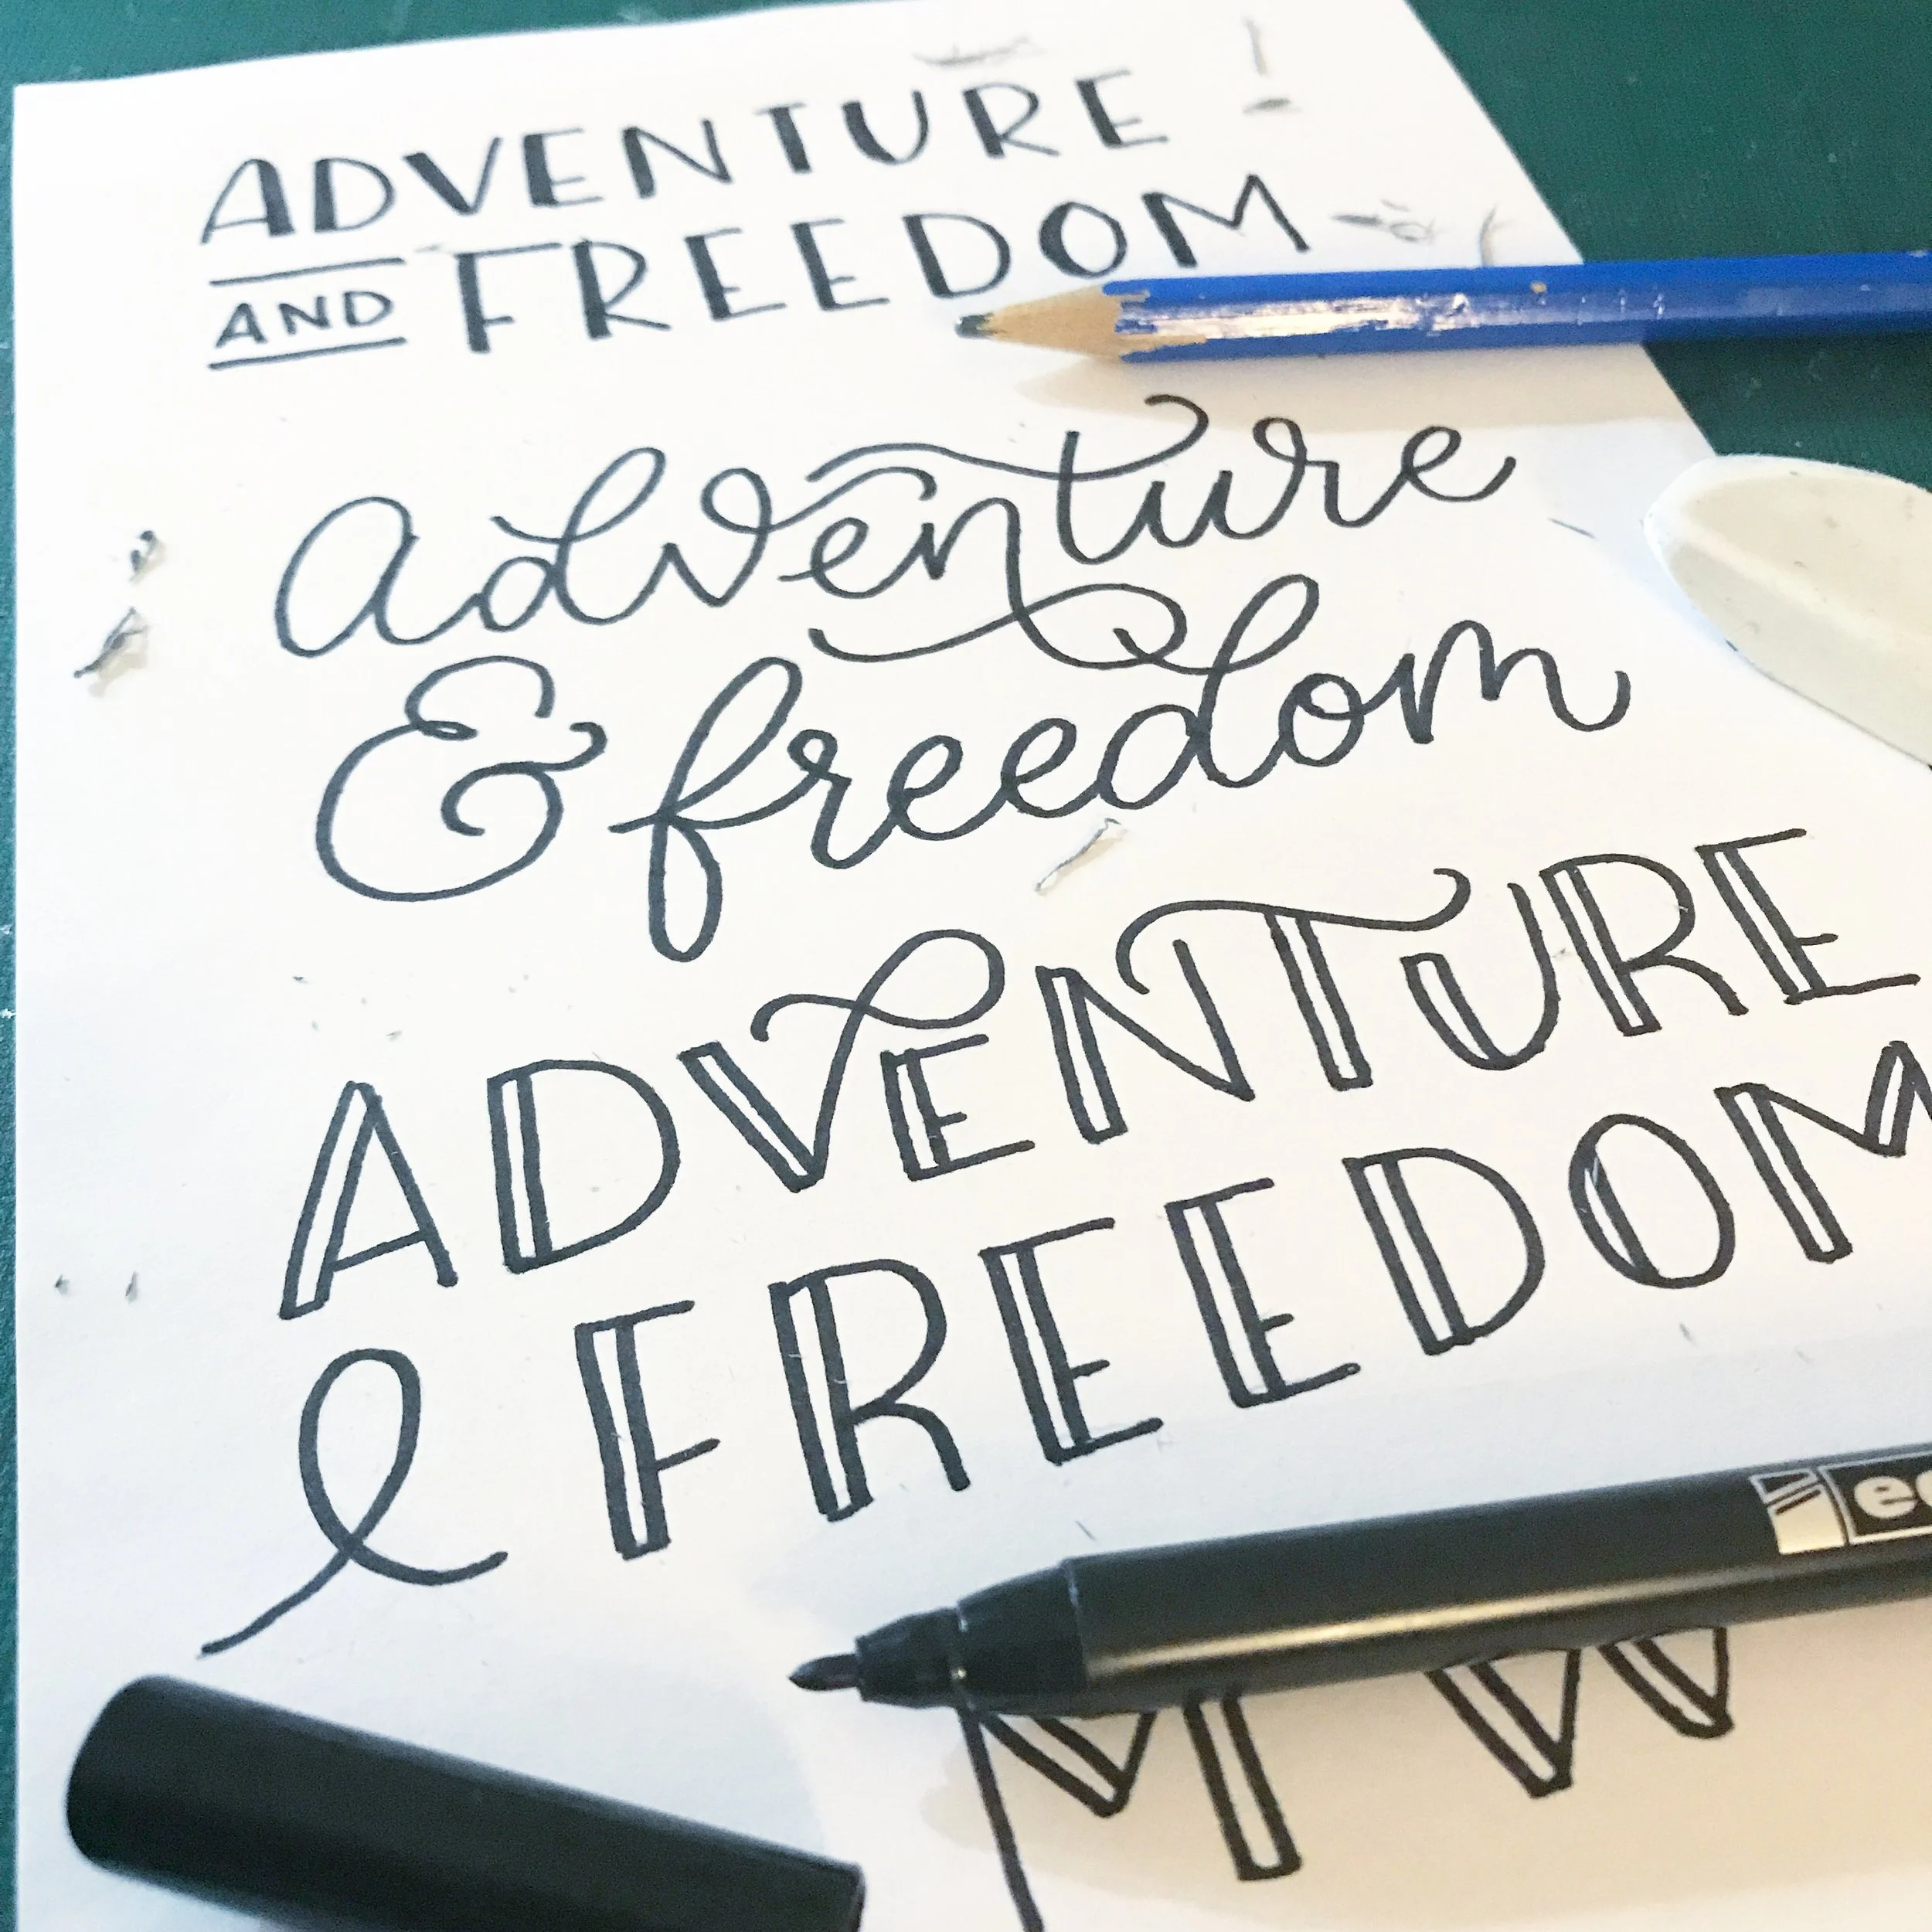 ADVENTURE
AND FREEDOM
adventure
& freedom
ADVENTURE
& FREEDOM
M W